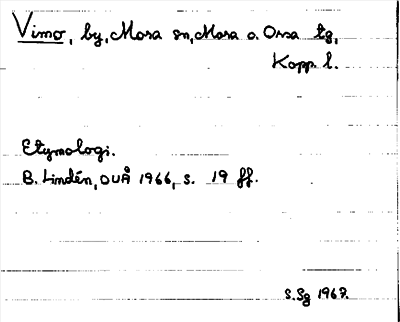 Vimo, by, Mora sn, Mora o. Orsa tg,
Kopp. l.
Etymologi.
B. Lindén, DUÅ 1966, s. 19 ff.
S.Sg 1967.